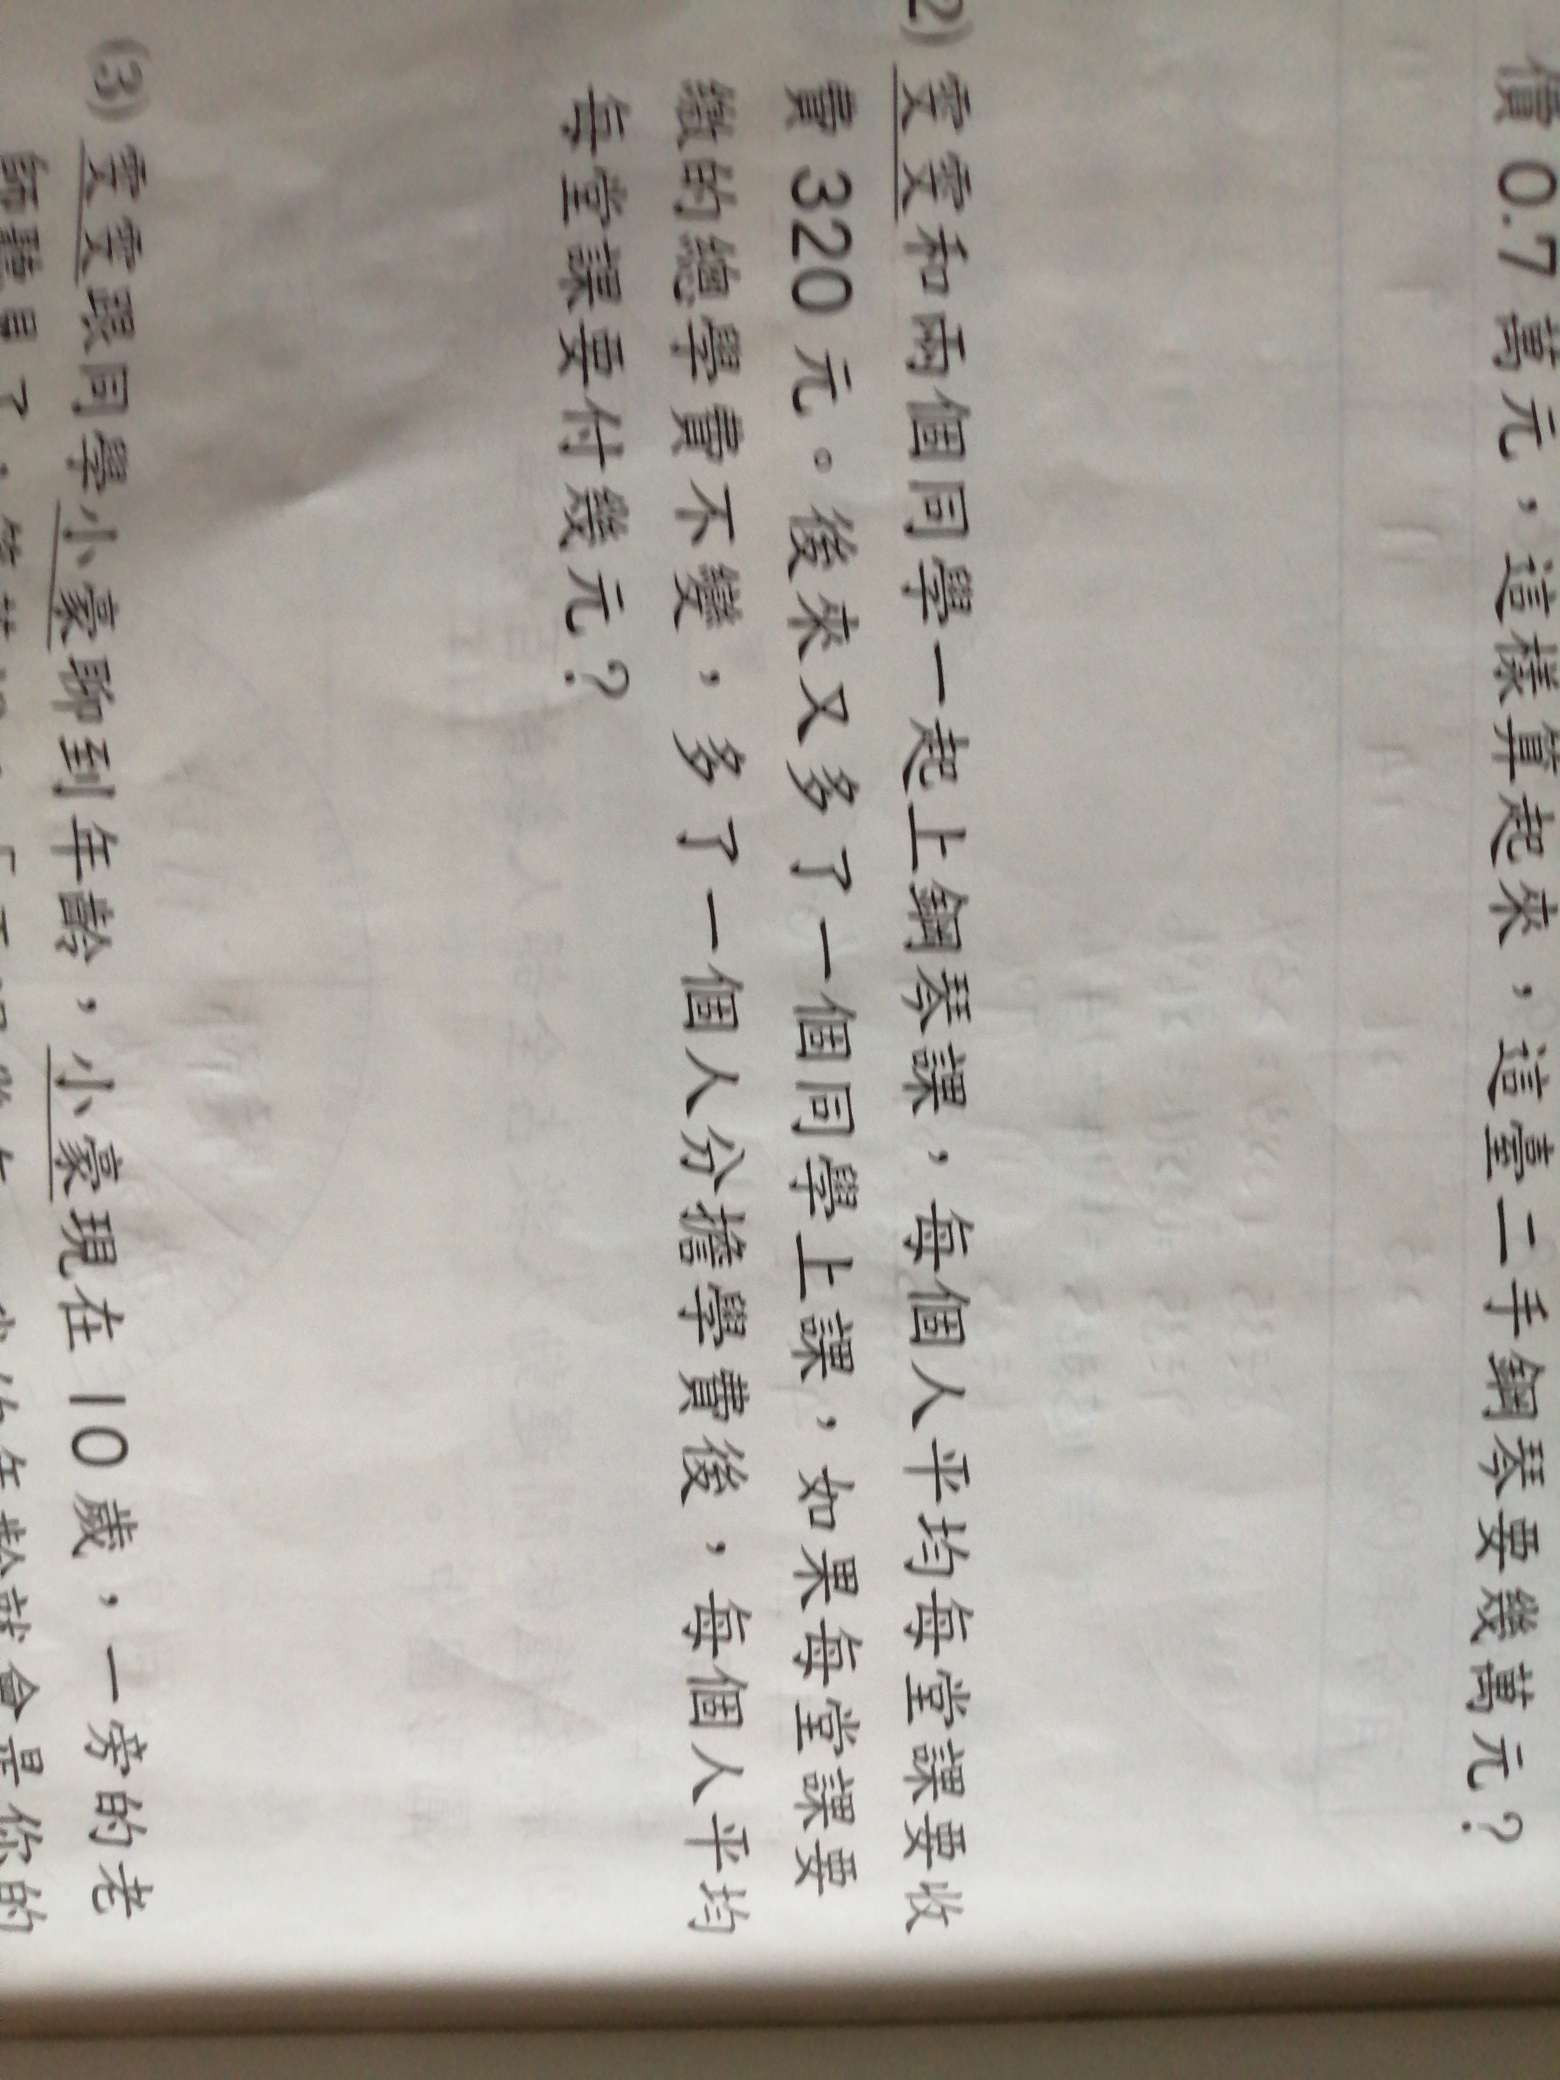 價 0.7 萬元，這樣算起來，這臺二手鋼琴要幾萬元？
2) 雯雯和兩個同學一起上鋼琴課，每個人平均每堂課要收
費 320 元。後來又多了一個同學上課，如果每堂課要
繳的總學費不變，多了一個人分擔學費後，每個人平均
每堂課要付幾元？
(3) 雯雯跟同學小豪聊到年齡，小豪現在 10 歲，一旁的老
師聽見了，我的年齡就會是你的